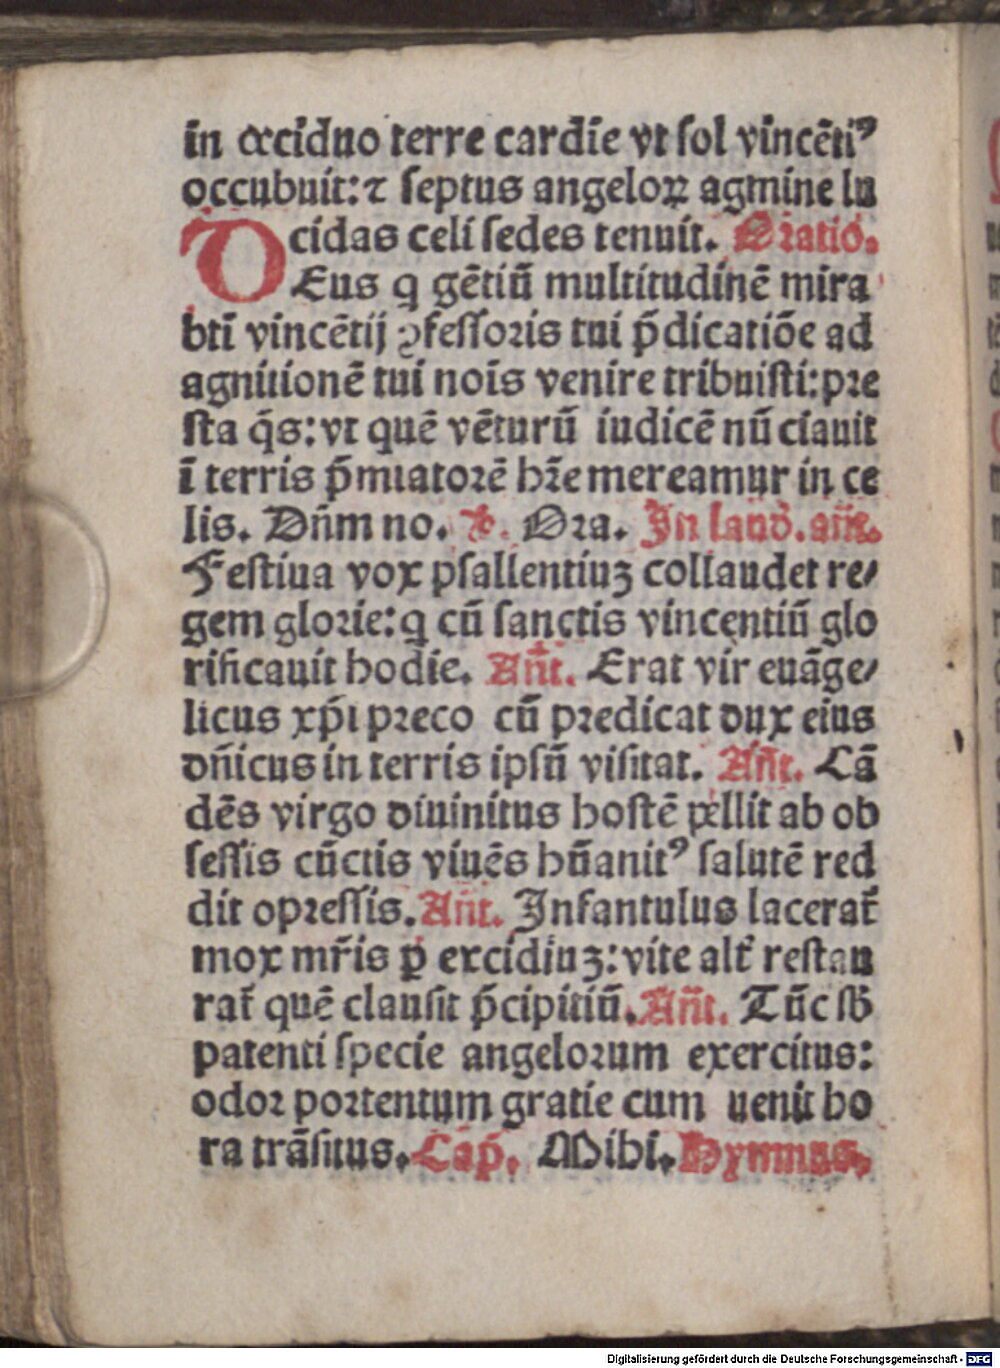 in occiduo terre cardīe vt sol vincēti⁹
occubuit: ⁊ septus angeloꝝ agmine lu
cidas celi sedes tenuit. Oratio.
DEus q̄ gētiū multitudinē mira
bti vincētij ꝯfessoris tui p̄dicatiōe ad
agnitionē tui nōis venire tribuisti: pre
sta q̄s: vt quē vēturū iudicē nūciauit
ī terris p̄miatorē hr̄e mereamur in ce
lis. Dn̄m no. Ora. In laud. añe.
Festiua vox psallentiuꝫ collaudet re/
gem glorie: q cū sanctis vincentiū glo
rificauit hodie. Añt. Erat vir euāge/
licus xp̄i preco cū predicat dux eius
dn̄icus in terris ipsū visitat. Añt. Cā
dēs virgo diuinitus hostē pellit ab ob
sessis cūctis viuēs hūanit⁹ salutē red
dit opressis. Añt. Infantulus lacerat̄
mox mr̄is ꝑ excidiuꝫ: vite alt̄ restau
rat̄ quē clausit p̄cipitiū. Añt. Tūc sb̄
patenti specie angelorum exercitus:
odor portentum gratie cum uenit ho
ra trāsitus. Cap̄. Mihi. Hymnus.
Digitalisierung gefördert durch die Deutsche Forschungsgemeinschaft - DFG